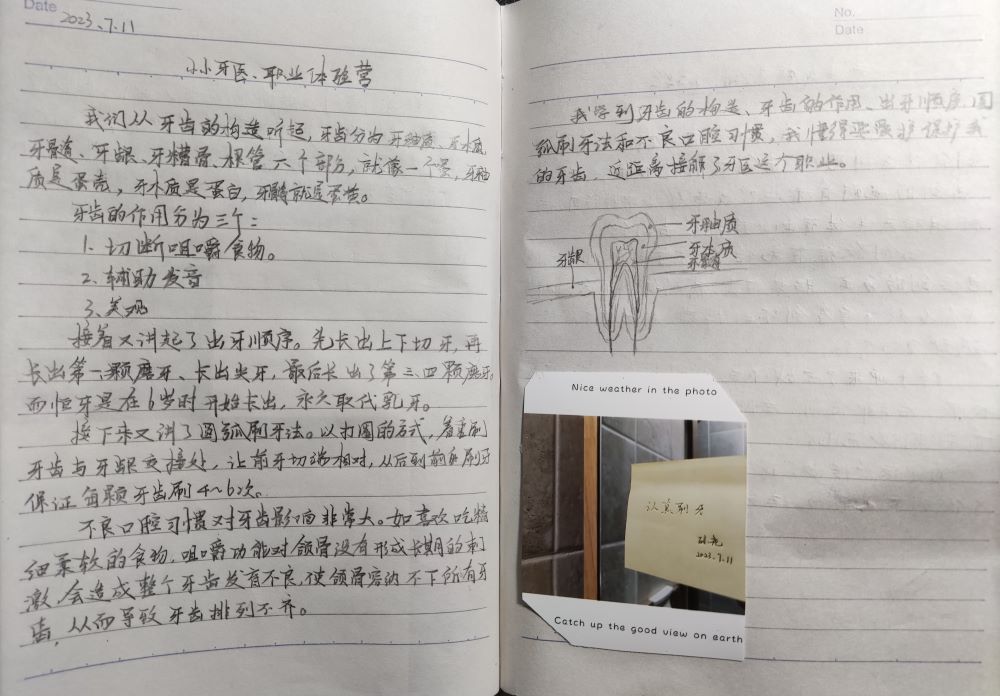 Date 2023.7.11
小小牙医、职业体验营
我们从牙齿的构造听起，牙齿分为牙釉质、牙本质、
牙骨道、牙龈、牙槽骨、根管六个部分，就像一个蛋，牙釉
质是蛋壳，牙本质是蛋白，牙髓就是蛋黄。
牙齿的作用分为三个：
1.切断咀嚼食物。
2.辅助发音
3.美观
接着又讲起了出牙顺序。先长出上下切牙，再
长出第一颗磨牙、长出尖牙，最后长出了第三四颗磨牙。
而恒牙是在6岁时开始长出，永久取代乳牙。
接下来又讲了圆弧刷牙法。以打圈的方式，着重刷
牙齿与牙龈交接处，让前牙切端相对，从后到前刷牙
保证每颗牙齿刷4~6次。
不良口腔习惯对牙齿影响非常大。如喜欢吃精
细柔软的食物，咀嚼功能对颌骨没有形成长期的刺
激，会造成整个牙齿发育不良，使颌骨容纳不下所有牙
齿，从而导致牙齿排列不齐。
No.
Date
我学到牙齿的构造、牙齿的作用、出牙顺序、圆
弧刷牙法和不良口腔习惯，我懂得要保护我
的牙齿，近距离接触了牙医这个职业。
牙釉质
牙龈
牙本质
Nice weather in the photo
认真刷牙
2023.7.11
Catch up the good view on earth